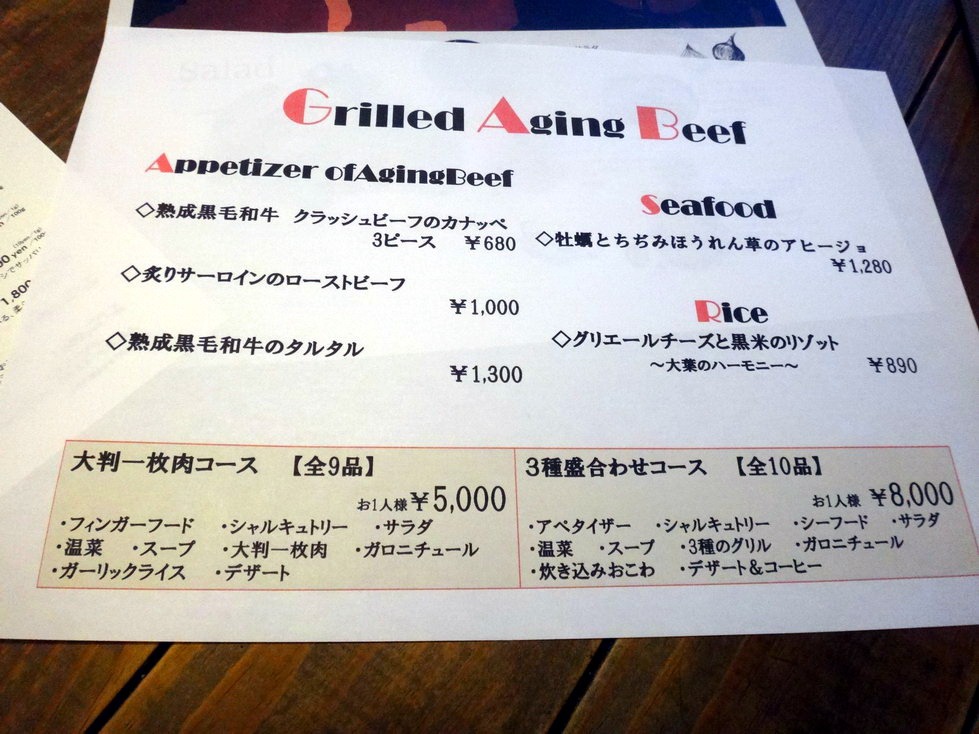 サラダ
Salad
Grilled Aging Beef
Appetizer ofAgingBeef
◇熟成黒毛和牛 クラッシュビーフのカナッペ
3ピース ¥680
◇炙りサーロインのローストビーフ
¥1,000
◇熟成黒毛和牛のタルタル
¥1,300
Seafood
◇牡蠣とちぢみほうれん草のアヒージョ
¥1,280
Rice
◇グリエールチーズと黒米のリゾット
～大葉のハーモニー～ ¥890
大判一枚肉コース 【全9品】
お1人様 ¥5,000
・フィンガーフード ・シャルキュトリー ・サラダ
・温菜 ・スープ ・大判一枚肉 ・ガロニチュール
・ガーリックライス ・デザート
3種盛合わせコース 【全10品】
お1人様 ¥8,000
・アペタイザー ・シャルキュトリー ・シーフード ・サラダ
・温菜 ・スープ ・3種のグリル ・ガロニチュール
・炊き込みおこわ ・デザート＆コーヒー
1,800